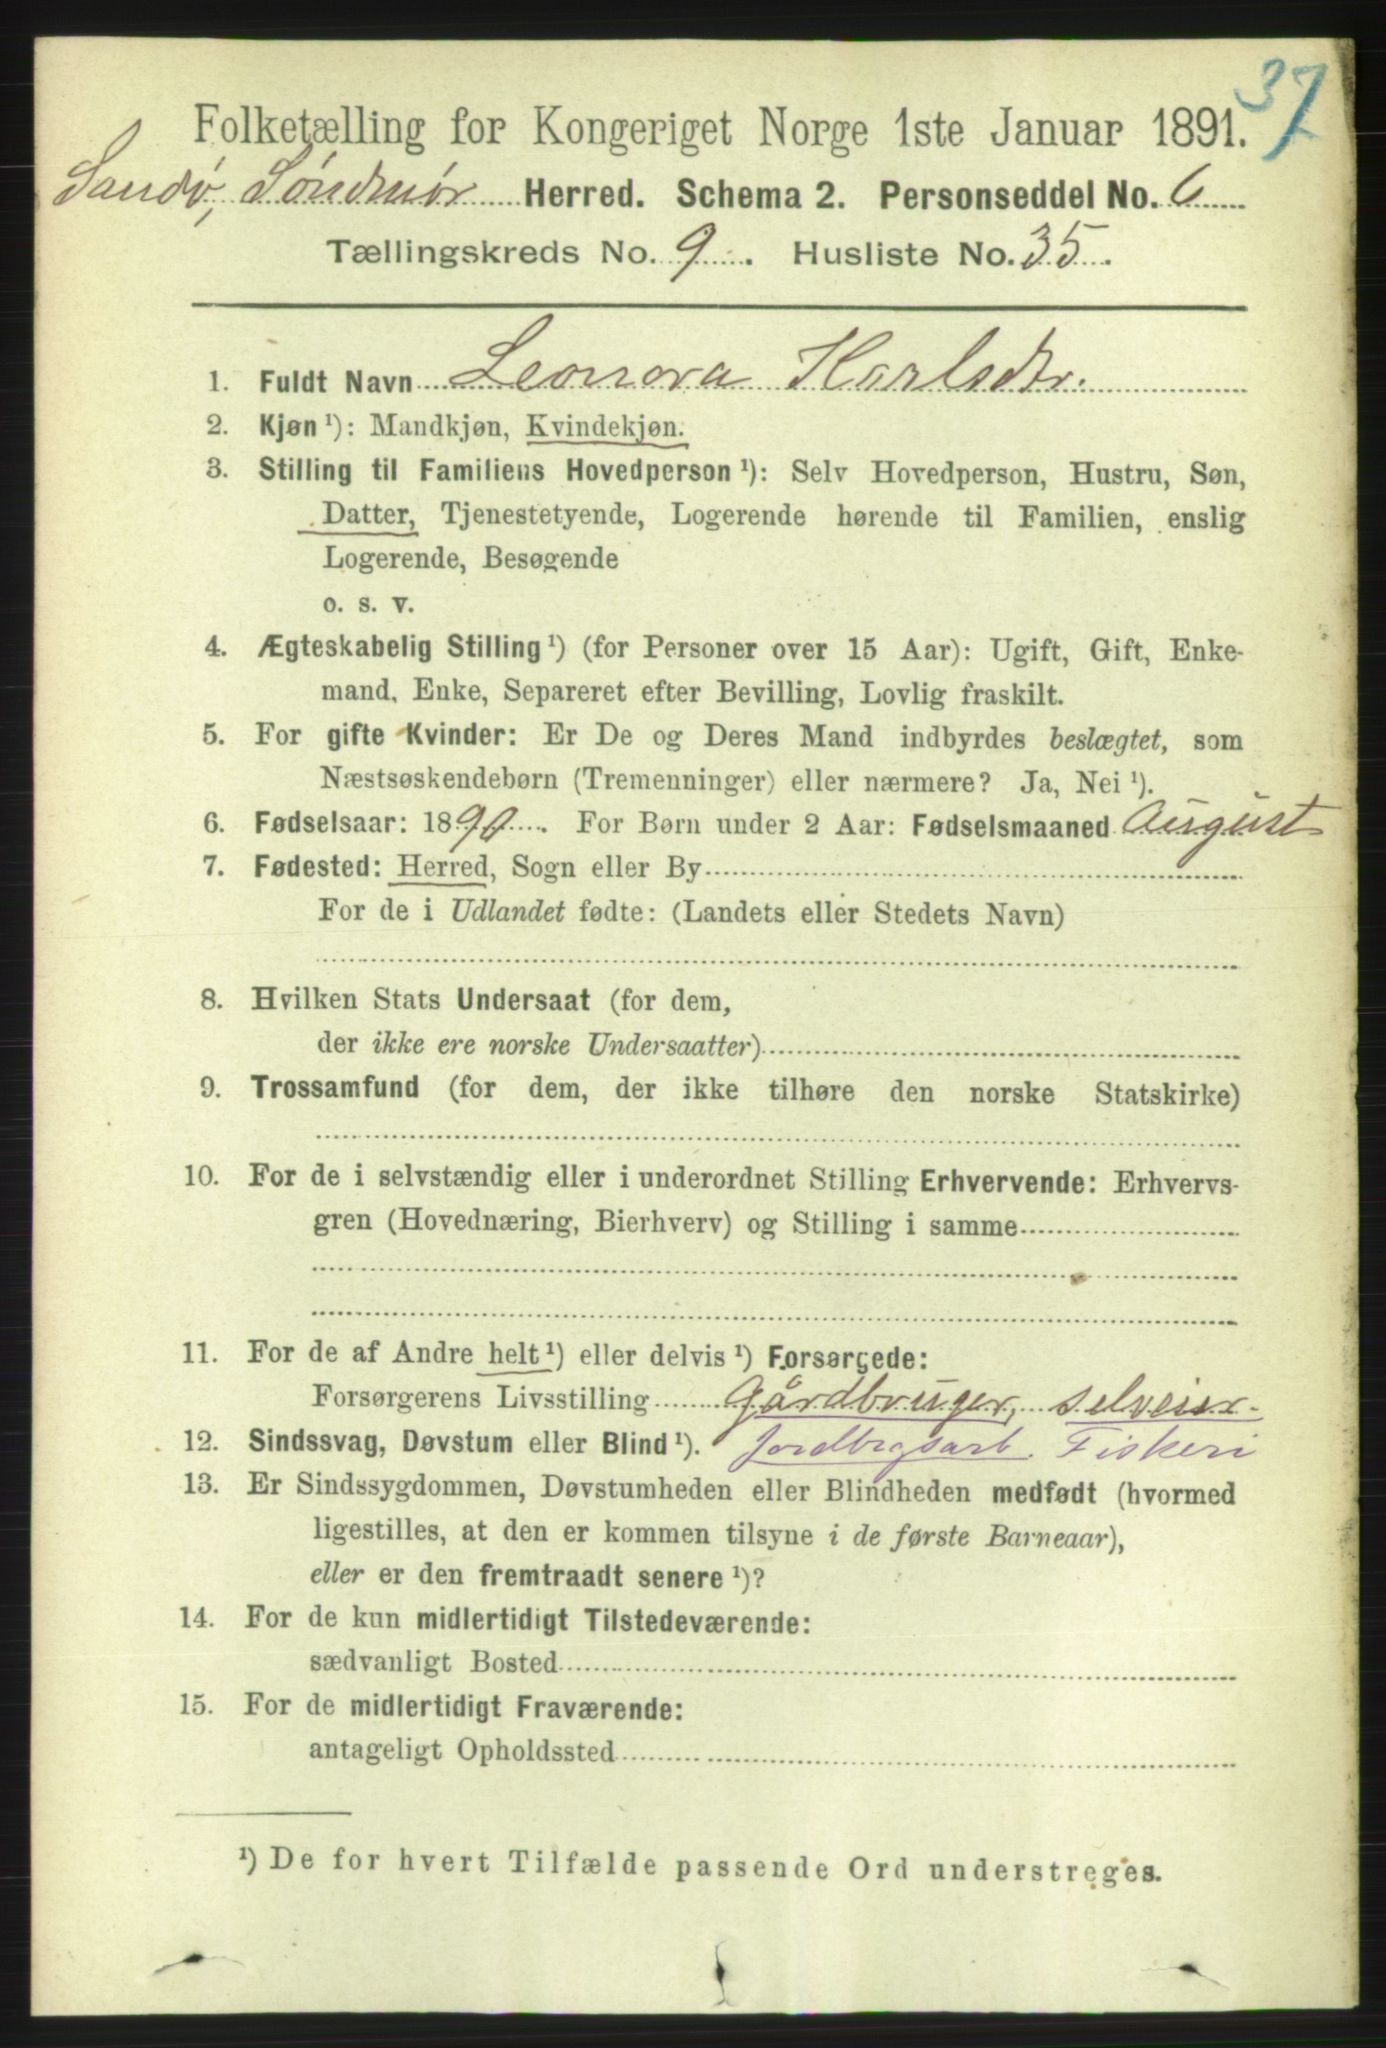 37
Folketælling for Kongeriget Norge 1ste Januar 1891.
Sandø, Søndmør Herred. Schema 2. Personseddel No. 6
Tællingskreds No. 9. Husliste No. 35.
1. Fuldt Navn Leonora Karlsdtr.
2. Kjøn ¹): Mandkjøn, Kvindekjøn.
3. Stilling til Familiens Hovedperson ¹): Selv Hovedperson, Hustru, Søn,
Datter, Tjenestetyende, Logerende hørende til Familien, enslig
Logerende, Besøgende
o. s. v.
4. Ægteskabelig Stilling ¹) (for Personer over 15 Aar): Ugift, Gift, Enke-
mand, Enke, Separeret efter Bevilling, Lovlig fraskilt.
5. For gifte Kvinder: Er De og Deres Mand indbyrdes beslægtet, som
Næstsøskendebørn (Tremenninger) eller nærmere? Ja, Nei ¹).
6. Fødselsaar: 1890. For Børn under 2 Aar: Fødselsmaaned August
7. Fødested: Herred, Sogn eller By
For de i Udlandet fødte: (Landets eller Stedets Navn)
8. Hvilken Stats Undersaat (for dem,
der ikke ere norske Undersaatter)
9. Trossamfund (for dem, der ikke tilhøre den norske Statskirke)
10. For de i selvstændig eller i underordnet Stilling Erhvervende: Erhvervs-
gren (Hovednæring, Bierhverv) og Stilling i samme
11. For de af Andre helt ¹) eller delvis ¹) Forsørgede:
Forsørgerens Livsstilling Gårdbruger, selveier.
12. Sindssvag, Døvstum eller Blind ¹). Jordbrgsarb. Fiskeri
13. Er Sindssygdommen, Døvstumheden eller Blindheden medfødt (hvormed
ligestilles, at den er kommen tilsyne i de første Barneaar),
eller er den fremtraadt senere ¹)?
14. For de kun midlertidigt Tilstedeværende:
sædvanligt Bosted
15. For de midlertidigt Fraværende:
antageligt Opholdssted
¹) De for hvert Tilfælde passende Ord understreges.